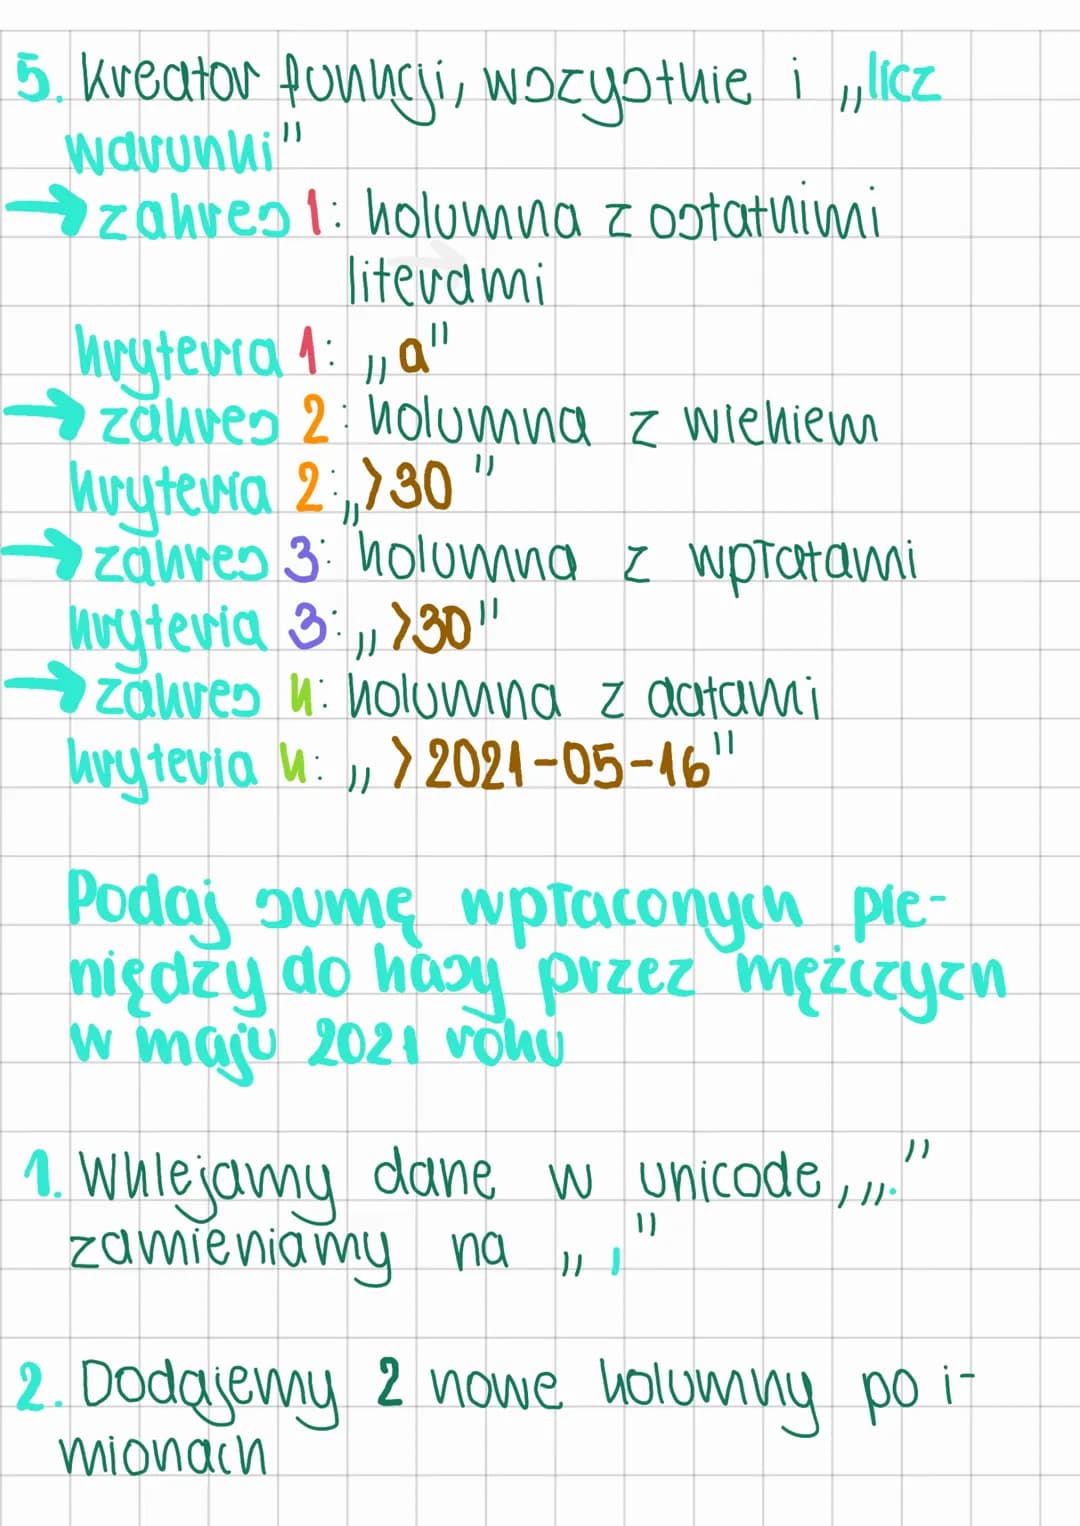 5. Kreator funkcji, wszystkie i „licz
warunki"
→ zakres 1: kolumna z ostatnimi
literami
kryteria 1: „a"
→ zakres 2: kolumna z wiekiem
kryteria 2: „>30"
→ zakres 3: kolumna z wpłatami
kryteria 3: „>30"
→ zakres 4: kolumna z datami
kryteria 4: „>2021-05-16"
Podaj sumę wpłaconych pie-
niędzy do kasy przez mężczyzn
w maju 2021 roku
1. Wklejamy dane w unicode, „."
zamieniamy na „,"
2. Dodajemy 2 nowe kolumny po i-
mionach